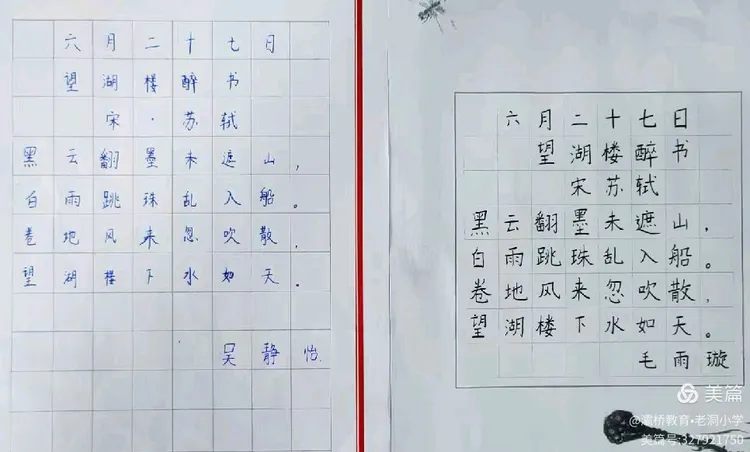 六月二十七日
望湖楼醉书
宋·苏轼
黑云翻墨未遮山，
白雨跳珠乱入船。
卷地风来忽吹散，
望湖楼下水如天。
吴静怡
六月二十七日
望湖楼醉书
宋苏轼
黑云翻墨未遮山，
白雨跳珠乱入船。
卷地风来忽吹散，
望湖楼下水如天。
毛雨璇
美篇
@灞桥教育•老洞小学
美篇号:327921750